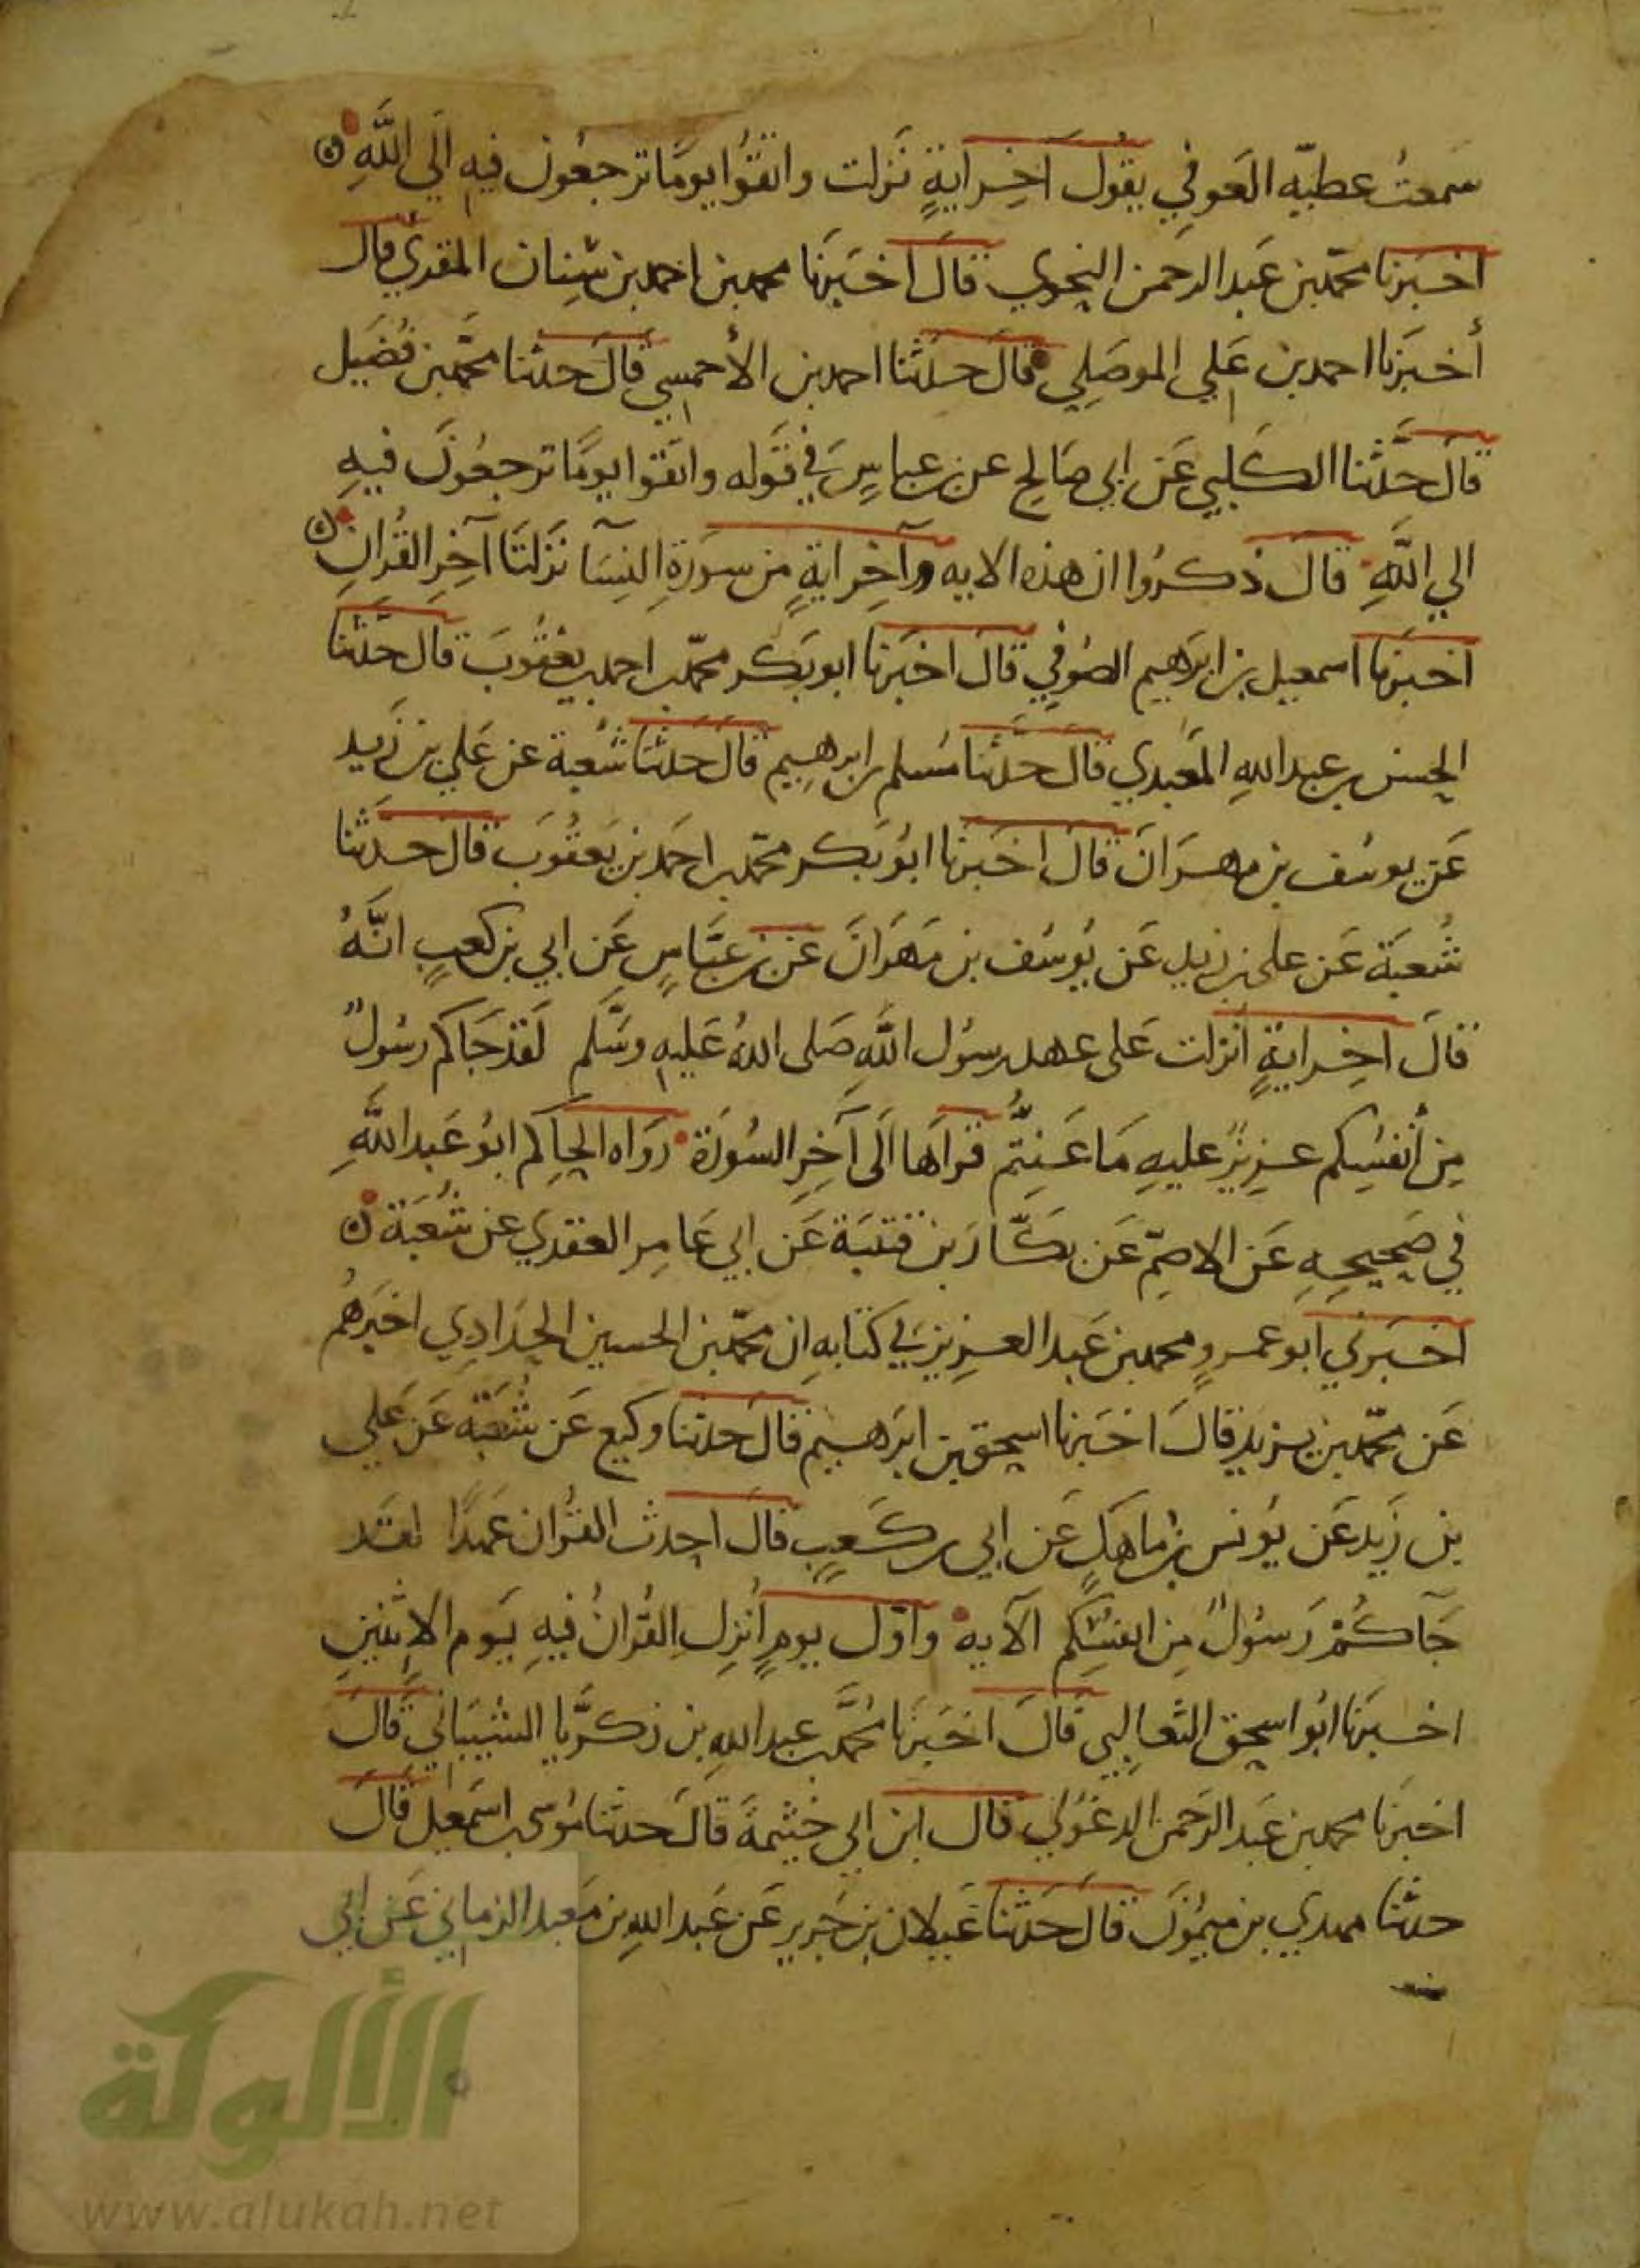 سَمعتُ عطيّه العَوفي يقُول آخِر ايةٍ نَزلت واتقُوا يومًا ترجعُون فيه الَي اللَّهِ
اخبَرنا محمّد بن عَبد الرحمن النحوي قَالَ اخبَرنا محمد بن احمد بن سِنان المقري قال
أخبَرنا احمد بن عَلي الموصِلي قالَ حدَثنا احمد بن الأحمسي قالَ حدثنا محمّد بن فُضَيل
قالَ حدَّثنا الكَلبي عَن ابي صَالِح عن بن عباسٍ في قَوله واتقوا يومًا ترجعُونَ فيهِ
الي اللَّهِ قالَ ذكرُوا ان هذه الايه وآخِر ايةٍ من سورَةِ النِسَآ نزلتَا آخِر القُرانِ
اخبَرنا اسمعيل بن ابرَاهيم الصُوفي قالَ اخبَرنا ابو بَكر محمّد بن احمد بن يعقُوبَ قالَ حدَّثنا
الحسن بن عبد اللهِ العَبدي قالَ حدَّثنا مُسلم بن ابراهيم قالَ حدَثنا شُعبة عن عَلي بن زَيد
عَن يوسُف بن مهرَانَ قالَ اخبَرنا ابُو بَكر محمّد بن احمَد بن يَعقُوبَ قالَ حدَثنا
شُعبَة عَن علي بن زيد عَن يُوسُف بن مَهرَانَ عَن بن عبَّاسٍ عَن ابي بن كعبٍ انَّهُ
قالَ اخِر ايةٍ أنزلت عَلى عهد رسُول اللَّهِ صَلى اللهُ عَليهِ وسَلَّم لَقد جَاكم رسُولٌ
مِن أنفسُِكم عزِيزٌ عليهِ مَا عَنِتُّم قرَاهَا الَى آخِرِ السُورَة رَوَاه الحاكِم ابُو عَبد اللَّهِ
في صَحيحِهِ عَن الاصَمِّ عَن بكَّار بن قتَيبَة عَن ابي عَامِر العقدي عن شُعبَة
اخبَرني ابو عمرٍو محمد بن عَبد العزِيز في كتابهِ ان محمّد بن الحسين الحدَادِي اخبَرهُم
عَن محمّد بن يزيد قالَ اخبَرنا اسحق بن ابرَاهيم قالَ حدثنا وَكيع عَن شُعَبة عَن عَلي
بن زَيد عَن يُونس بن ماهَكٍ عَن ابي بن كعبٍ قالَ احدث القُران عَهدًا لقَد
جَآكُمْ رَسُولٌ مِن انفسُِكم الآيه واوّل يومٍ أُنزِل القُرانُ فيهِ يَوم الاثنينِ
اخبَرنا ابُو اسحق الثعالِبي قالَ اخبَرنا محُمَّد بن عبد اللهِ بن زكرَّيا الشَيبَاني قالَ
اخبَرنا محمد بن عَبد الرَحمن الدغُولي قال ابن ابي خَيثمةَ قالَ حدثنا مُوسى بن اسمَعيل قالَ
حدثنا مهدي بن ميمُونَ قالَ حَدثنا غَيلان بن جَرير عَن عَبد اللهِ بن مَعبد الزماني عَن ابي
الألوكة
www.alukah.net